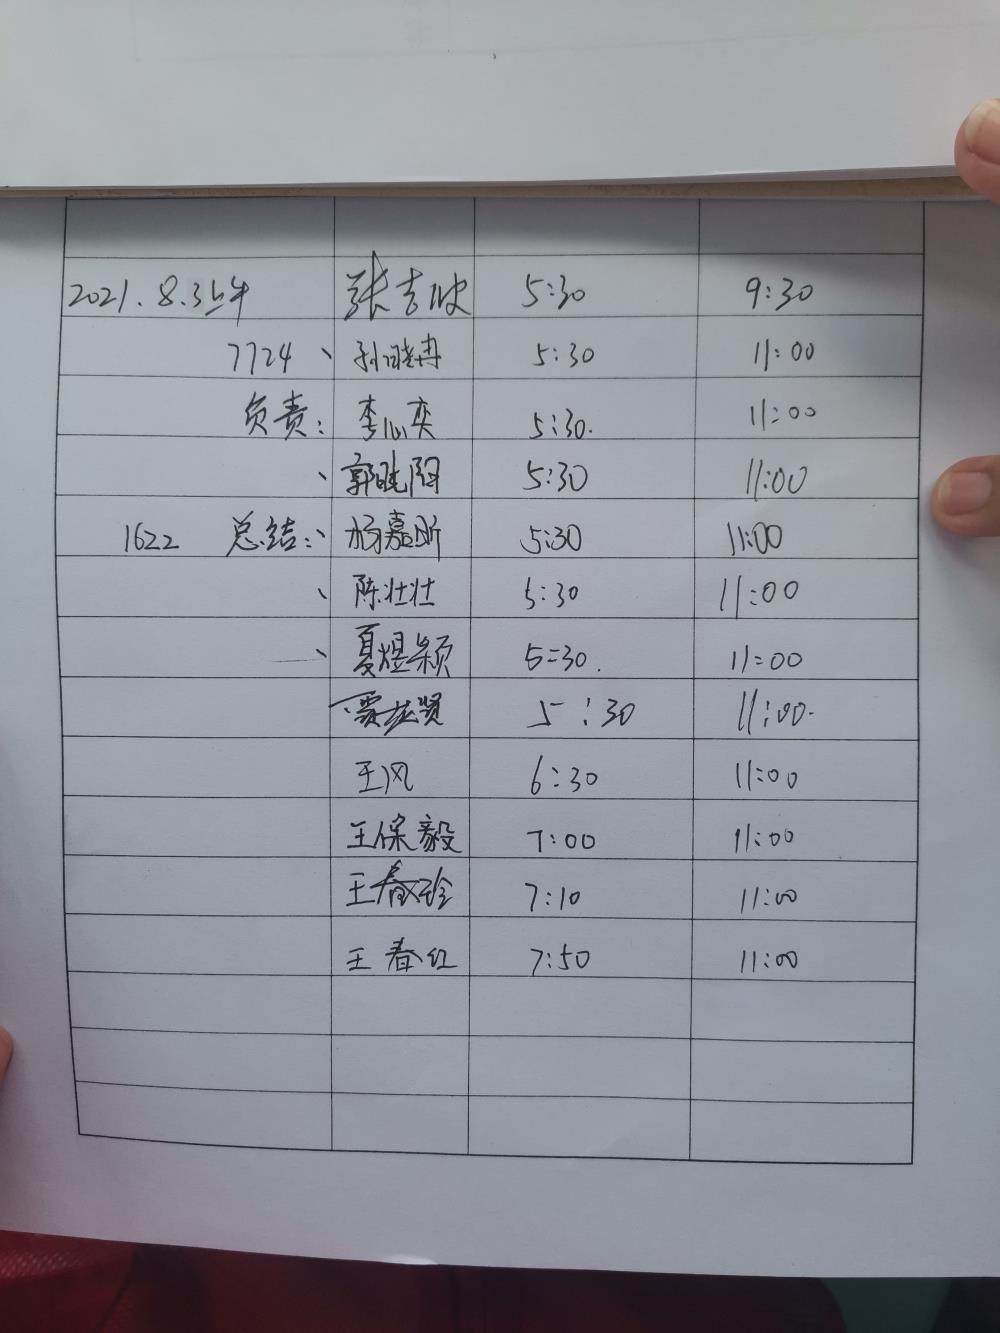 2021.8.3上午 张吉波 5:30 9:30
7724、 孙晓冉 5:30 11:00
负责: 李心奕 5:30. 11:00
、 郭晓阳 5:30 11:00
1622 总结:、 杨嘉昕 5:30 11:00
、 陈壮壮 5:30 11:00
、 夏煜颖 5:30. 11:00
贤 5:30 11:00.
王风 6:30 11:00
王保毅 7:00 11:00
王春玲 7:10 11:00
王春红 7:50 11:00